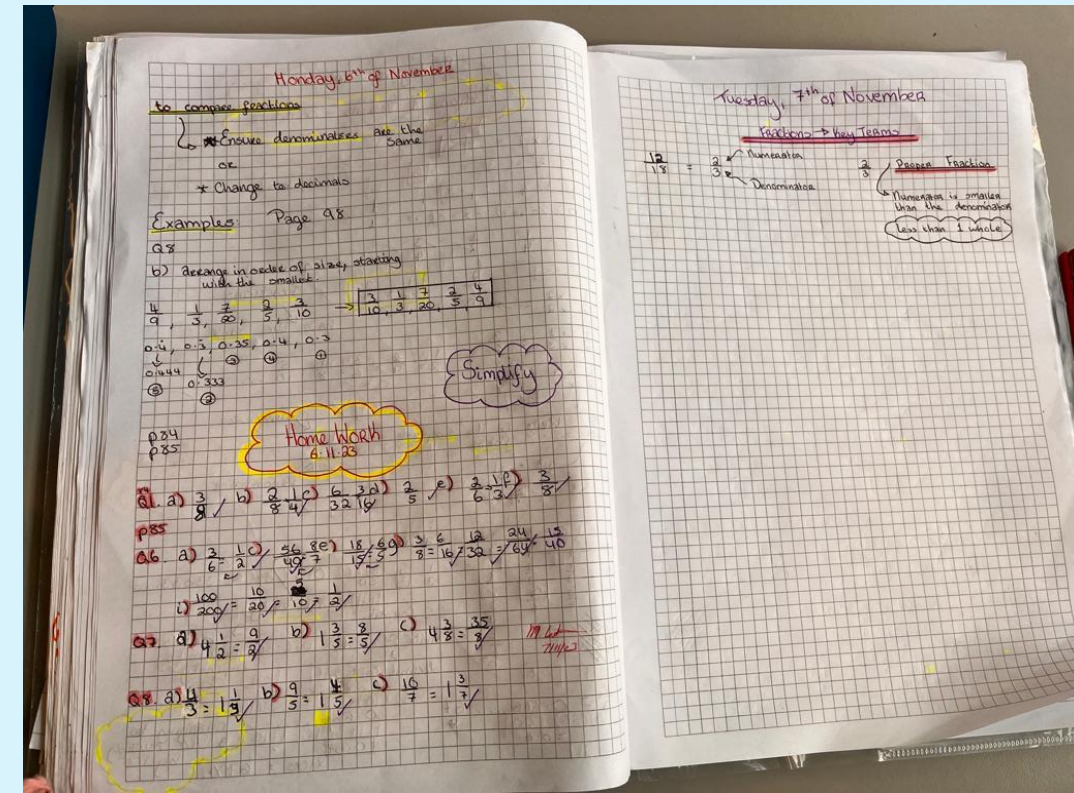 Monday, 6th of November
to compare fractions
* Ensure denominators are the same
or
* Change to decimals
Examples: Page 98
Q8
b) arrange in order of size, starting
with the smallest.
4/9, 1/3, 7/20, 2/5, 3/10 → 3/10, 1/3, 7/20, 2/5, 4/9
0.4̇, 0.3̇, 0.35, 0.4, 0.3
0.444 ③ ④ ①
⑤ 0.333
②
Simplify
p84
p85
Home Work
6.11.23
Q1. a) 3/8 b) 2/8 1/4 c) 6/32 3/16 d) 2/5 e) 2/6 = 1/3 f) 3/8
p85
Q6 a) 3/6 = 1/2 c) 56/49 = 8/7 e) 18/15 = 6/5 g) 3/8 = 6/16 = 12/32 = 24/64 = 15/40
i) 100/200 = 10/20 = 5/10 = 1/2
Q7. a) 4 1/2 = 9/2 b) 1 3/5 = 8/5 c) 4 3/8 = 35/8
Q8. a) 4/3 = 1 1/3 b) 9/5 = 1 4/5 c) 10/7 = 1 3/7
Tuesday, 7th of November
Fractions → Key Terms
12/18 = 2/3 Numerator
Denominator
2/3 Proper Fraction
Numerator is smaller
than the denominator
Less than 1 whole